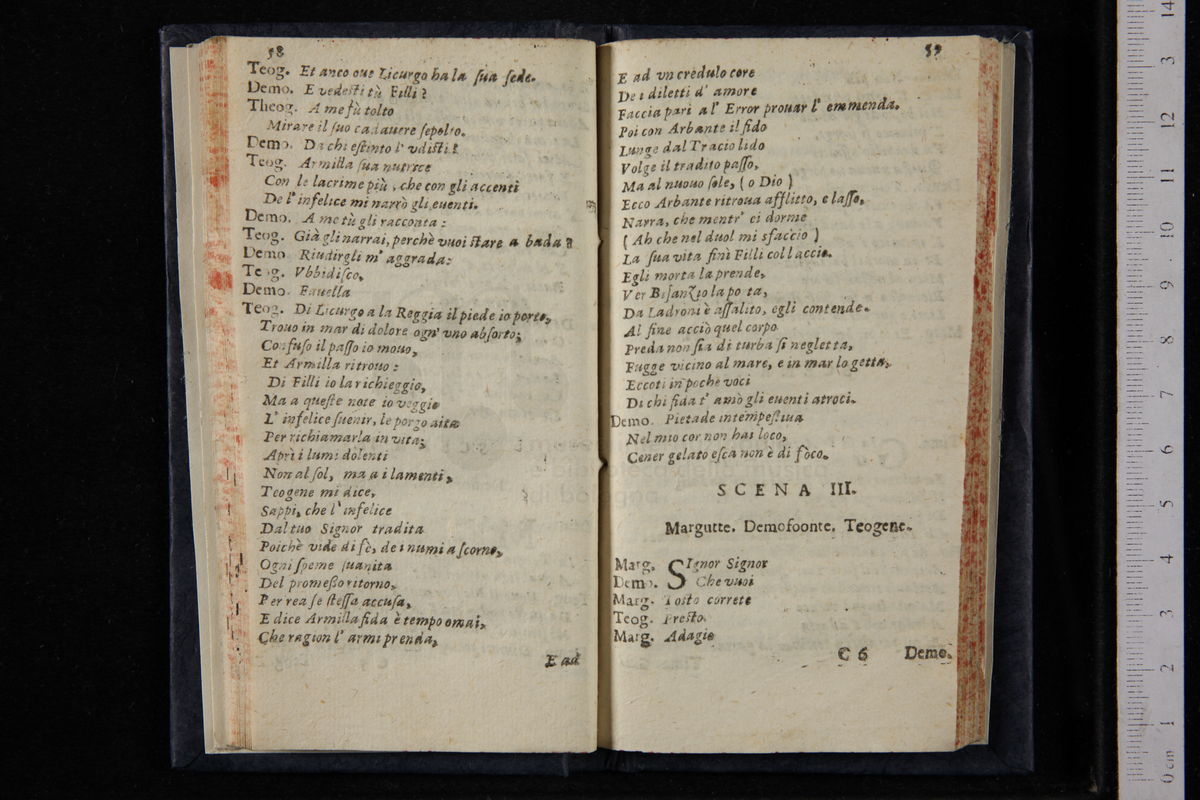 58
Teog. Et anco oue Licurgo ha la sua sede.
Demo. E vedesti tù Filli?
Theog. A me fù tolto
Mirare il suo cadauere sepolto.
Demo. Da chi estinto l' vdisti?
Teog. Armilla sua nutrice
Con le lacrime più, che con gli accenti
De l' infelice mi narrò gli euenti.
Demo. A me tù gli racconta:
Teog. Già gli narrai, perchè vuoi stare a bada?
Demo. Riudirgli m' aggrada:
Teog. Vbbidisco,
Demo. Fauella
Teog. Di Licurgo a la Reggia il piede io porto,
Trouo in mar di dolore ogn' vno absorto;
Confuso il passo io mouo,
Et Armilla ritrouo:
Di Filli io la richieggio,
Ma a queste note io veggio
L' infelice suenir, le porgo aita
Per richiamarla in vita;
Aprì i lumi dolenti
Non al sol, ma a i lamenti,
Teogene mi dice,
Sappi, che l' infelice
Dal tuo Signor tradita
Poichè vide di fè, de i numi a scorno,
Ogni speme suanita
Del promesso ritorno,
Per rea se stessa accusa,
E dice Armilla fida è tempo omai,
Che ragion l' armi prenda,
E ad
59
E ad vn credulo core
De i diletti d' amore
Faccia pari al' Error prouar l' emmenda.
Poi con Arbante il fido
Lunge dal Tracio lido
Volge il tradito passo,
Ma al nuouo sole, (o Dio)
Ecco Arbante ritroua afflitto, e lasso,
Narra, che mentr' ei dorme
(Ah che nel duol mi sfaccio)
La sua vita finì Filli col laccio.
Egli morta la prende,
Ver Bisanzio la porta,
Da Ladroni è assalito, egli contende.
Al fine acciò quel corpo
Preda non sia di turba sì negletta,
Fugge vicino al mare, e in mar lo getta,
Eccoti in poche voci
Di chi fida t' amò gli euenti atroci.
Demo. Pietade intempestiua
Nel mio cor non hai loco,
Cener gelato esca non è di foco.
SCENA III.
Margutte. Demofoonte. Teogene.
Marg. SIgnor Signor
Demo. Che vuoi
Marg. Tosto correte
Teog. Presto
Marg. Adagio
C 6 Demo.